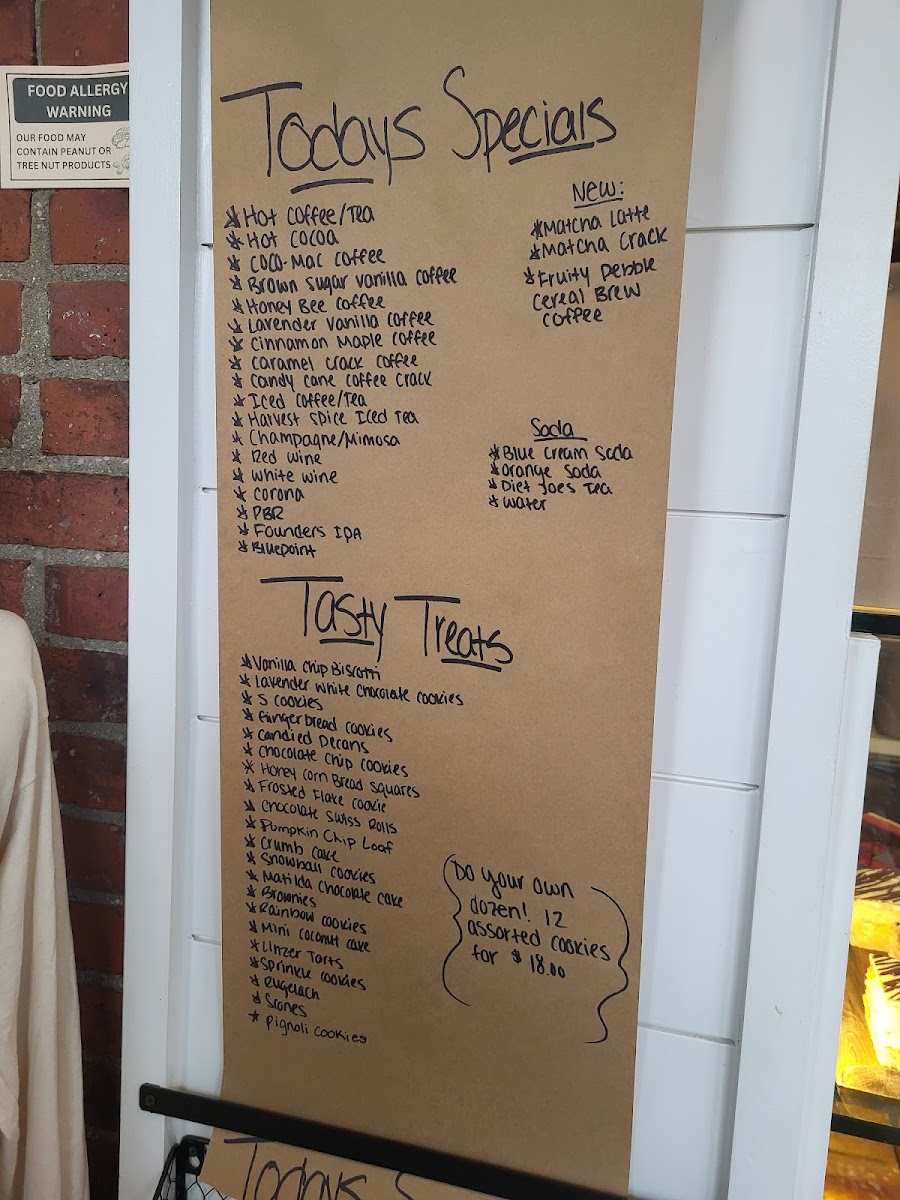 FOOD ALLERGY
WARNING
OUR FOOD MAY
CONTAIN PEANUT OR
TREE NUT PRODUCTS
Todays Specials
Hot Coffee/Tea
Hot Cocoa
Coco-Mac Coffee
Brown Sugar Vanilla Coffee
Honey Bee Coffee
Lavender Vanilla Coffee
Cinnamon Maple Coffee
Caramel Crack Coffee
Candy Cane Coffee Crack
Iced Coffee/Tea
Harvest Spice Iced Tea
Champagne/Mimosa
Red Wine
White Wine
Corona
PBR
Founders IPA
Bluepoint
New:
Matcha Latte
Matcha Crack
Fruity Pebble
Cereal Brew
Coffee
Soda
Blue Cream Soda
Orange Soda
Diet Joes Tea
Water
Tasty Treats
Vanilla Chip Biscotti
Lavender White Chocolate Cookies
S Cookies
Gingerbread Cookies
Candied Pecans
Chocolate Chip Cookies
Honey Corn Bread Squares
Frosted Flake Cookie
Chocolate Swiss Rolls
Pumpkin Chip Loaf
Crumb Cake
Snowball Cookies
Matilda Chocolate Cake
Brownies
Rainbow Cookies
Mini Coconut Cake
Linzer Tarts
Sprinkle Cookies
Rugelach
Scones
Pignoli Cookies
Do your own
dozen! 12
assorted cookies
for $18.00
Todays S